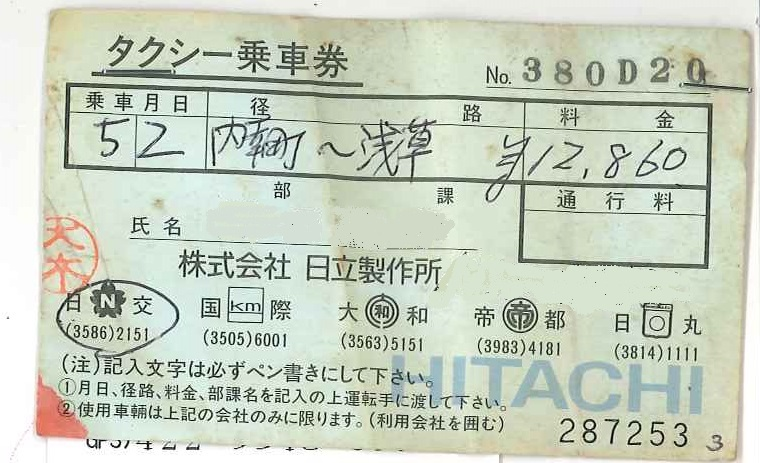 タクシー乗車券
No. 380D20
乗車月日 径路 料金
5 2 内幸町〜浅草 ¥12,860
部 課 通行料
氏名
株式会社 日立製作所
日 N 交 国 km 際 大 和 和 帝 帝 都 日 丸
(3586)2151 (3505)6001 (3563)5151 (3983)4181 (3814)1111
(注)記入文字は必ずペン書きにして下さい。
HITACHI
①月日、径路、料金、部課名を記入の上運転手に渡して下さい。
②使用車輌は上記の会社のみに限ります。(利用会社を囲む)
287253 3